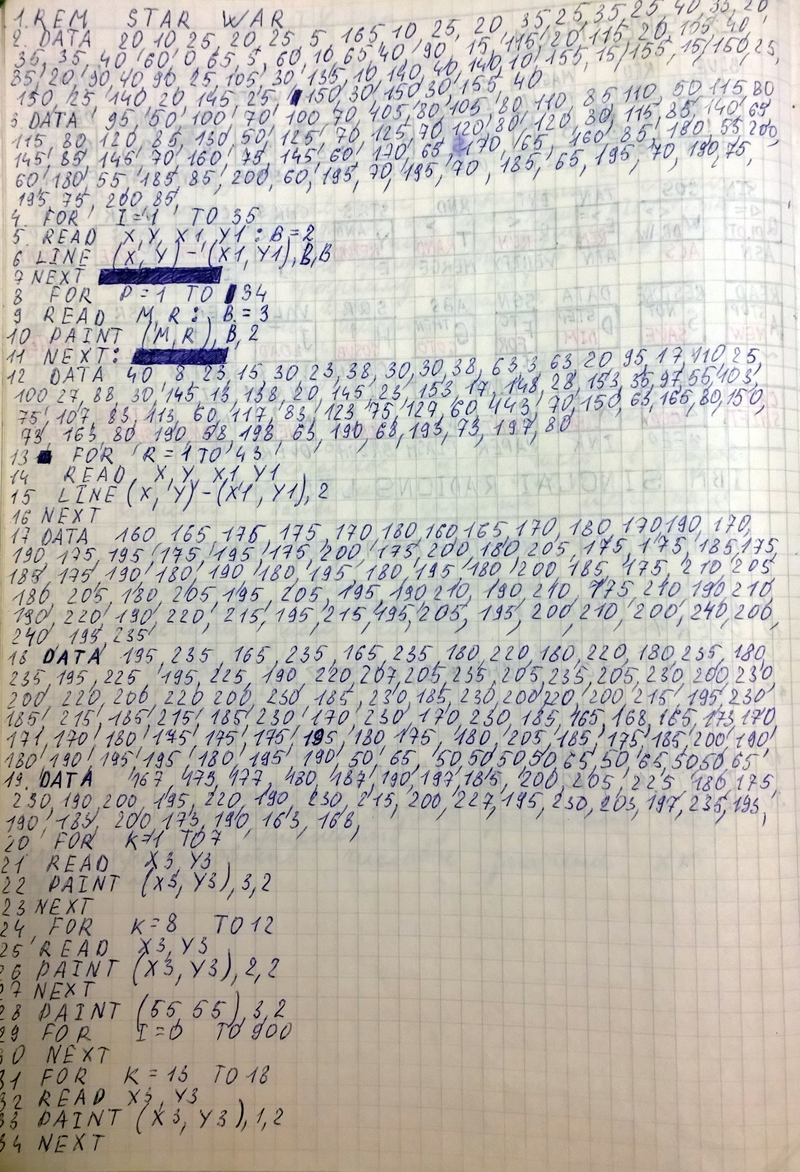 1. REM STAR WAR
2. DATA 20 10 25, 20 25 5 165 10, 25, 20, 35, 25, 35, 25, 40, 35, 20
35, 35, 40, 60, 0, 65, 5, 60, 10, 65 40, 90, 15, 115, 20, 115, 20, 40,
85, 20, 90 40 90 25, 105, 30, 135, 10, 140, 40, 140, 10, 155, 15, 155, 15, 150, 25,
150, 25, 140 20, 145, 25, 150 30, 150 30, 155, 40
3 DATA 95, 50, 100, 70, 100 70, 105, 80, 105, 80, 110, 85, 110, 50, 115, 80
115, 80, 120, 85, 130, 50, 125, 70, 125, 70, 120, 80, 120, 80, 115, 85, 140, 65
145, 85, 145, 70, 160, 75, 145, 60, 170, 65, 170, 65, 160, 85, 180, 55, 200,
60, 180, 55, 185, 85, 200, 60, 195, 70, 195, 70, 185, 65, 195, 70, 190, 75,
195, 75, 200, 85,
4. FOR I=1 TO 35
5. READ X, Y, X1, Y1: B=2
6 LINE (X, Y)-(X1, Y1), B, B
7 NEXT
8 FOR P=1 TO 34
9 READ M, R: B=3
10 PAINT (M, R), B, 2
11 NEXT:
12 DATA 40 8, 23, 15, 30 23, 38, 30, 30, 38, 63, 3, 63, 20, 95, 17, 110 25,
100 27, 88, 30, 145, 13, 138, 20, 145, 23, 153, 17, 148, 28, 153, 35, 97, 55, 103,
75, 107, 83, 113, 60, 117, 83, 123, 75, 127, 60, 443, 70, 150, 63, 165, 80, 150,
73, 163, 80, 190, 58, 198, 63, 190, 68, 193, 73, 197, 80
13 FOR R=1 TO 43
14 READ X, Y, X1, Y1
15 LINE (X, Y)-(X1, Y1), 2
16 NEXT
17 DATA 160 165, 175, 175, 170 180, 160, 165, 170, 180, 170 190, 170,
190 175, 195, 175, 195, 175, 200, 175, 200, 180, 205, 175, 175, 185, 175,
185, 175, 190, 180, 190, 180, 195, 180, 195, 180, 200, 185, 175, 210, 205
180, 205, 180, 205, 195, 205, 195, 190 210, 190, 210, 175, 210, 190, 210,
190, 220, 190, 220, 215, 195, 215, 195, 205, 195, 200, 210, 200, 240, 200,
240, 195, 235
18 DATA 195, 235, 165, 235, 165, 235, 180, 220, 180, 220, 180, 235, 180,
235, 195, 225, 195, 225, 190, 220, 207, 205, 235, 205, 235, 205, 230, 200, 230
200, 220, 200, 220, 200, 230, 185, 230, 185, 230, 200, 220, 200, 215, 195, 230
185, 215, 185, 215, 185, 230, 170, 230, 170, 230, 185, 165, 168, 165, 173, 170,
171, 170, 180, 175, 175, 175, 195, 180 175, 180, 205, 185, 175, 185, 200, 190
180, 190, 195, 195, 180, 195, 190, 50, 65, 50, 50, 50, 50, 65, 50, 65, 50 50, 65
19. DATA 167, 173, 177, 180, 187, 190, 197, 185, 200, 205, 225, 186, 175,
230, 190, 200, 195, 220, 190, 230, 215, 200, 227, 195, 230, 203, 197, 235, 193,
190, 183, 200, 173, 190, 163, 168,
20 FOR K=1 TO 7
21 READ X3, Y3
22 PAINT (X3, Y3), 3, 2
23 NEXT
24, FOR K=8 TO 12
25 READ X3, Y3
26 PAINT (X3, Y3), 2, 2
27 NEXT
28 PAINT (55, 55), 3, 2
29 FOR I=0 TO 900
30 NEXT
31 FOR K=13 TO 18
32 READ X3, Y3
33 PAINT (X3, Y3), 1, 2
34 NEXT